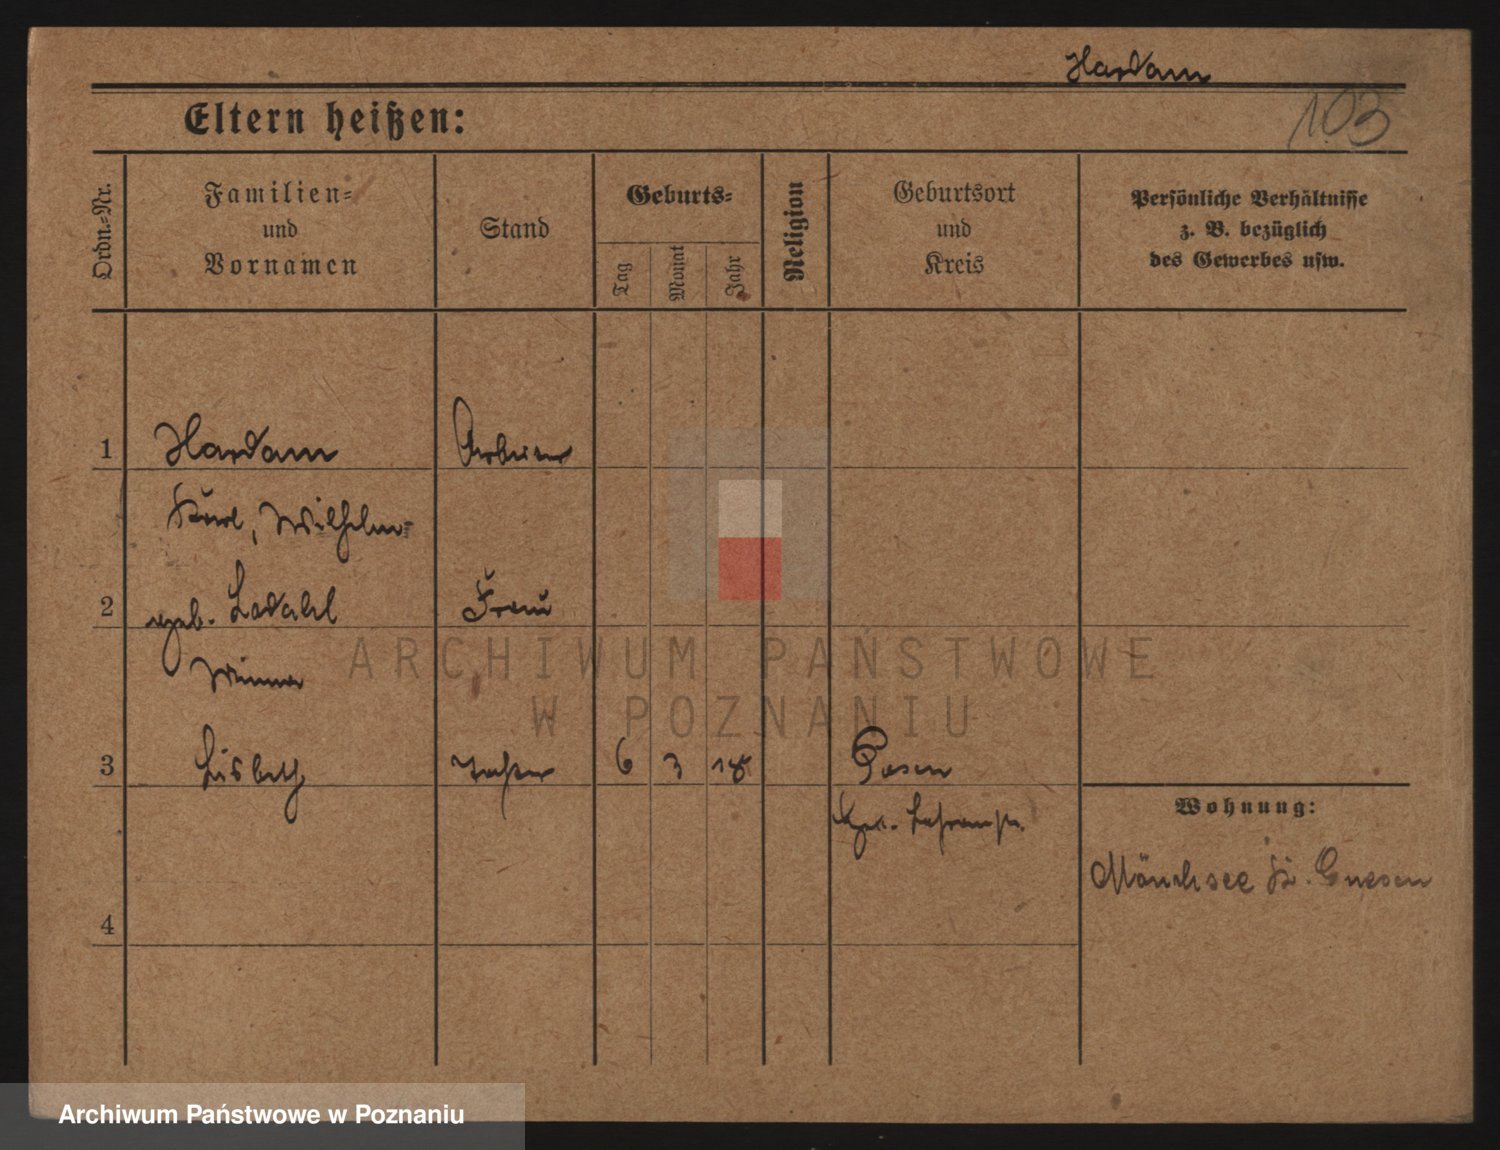 Hardam
103
Eltern heißen:
Ordn.-Nr.
Familien-
und
Vornamen
Stand
Geburts-
Tag
Monat
Jahr
Religion
Geburtsort
und
Kreis
Persönliche Verhältnisse
z. B. bezüglich
des Gewerbes usw.
1 Hardam Arbeiter
Karl, Wilhelm
2 geb. Ladahl Frau
Minna
3 Lisbeth Tochter 6 3 18 Posen
Wohnung:
Mönchsee Kr. Gnesen
4
ARCHIWUM PAŃSTWOWE
W POZNANIU
Archiwum Państwowe w Poznaniu